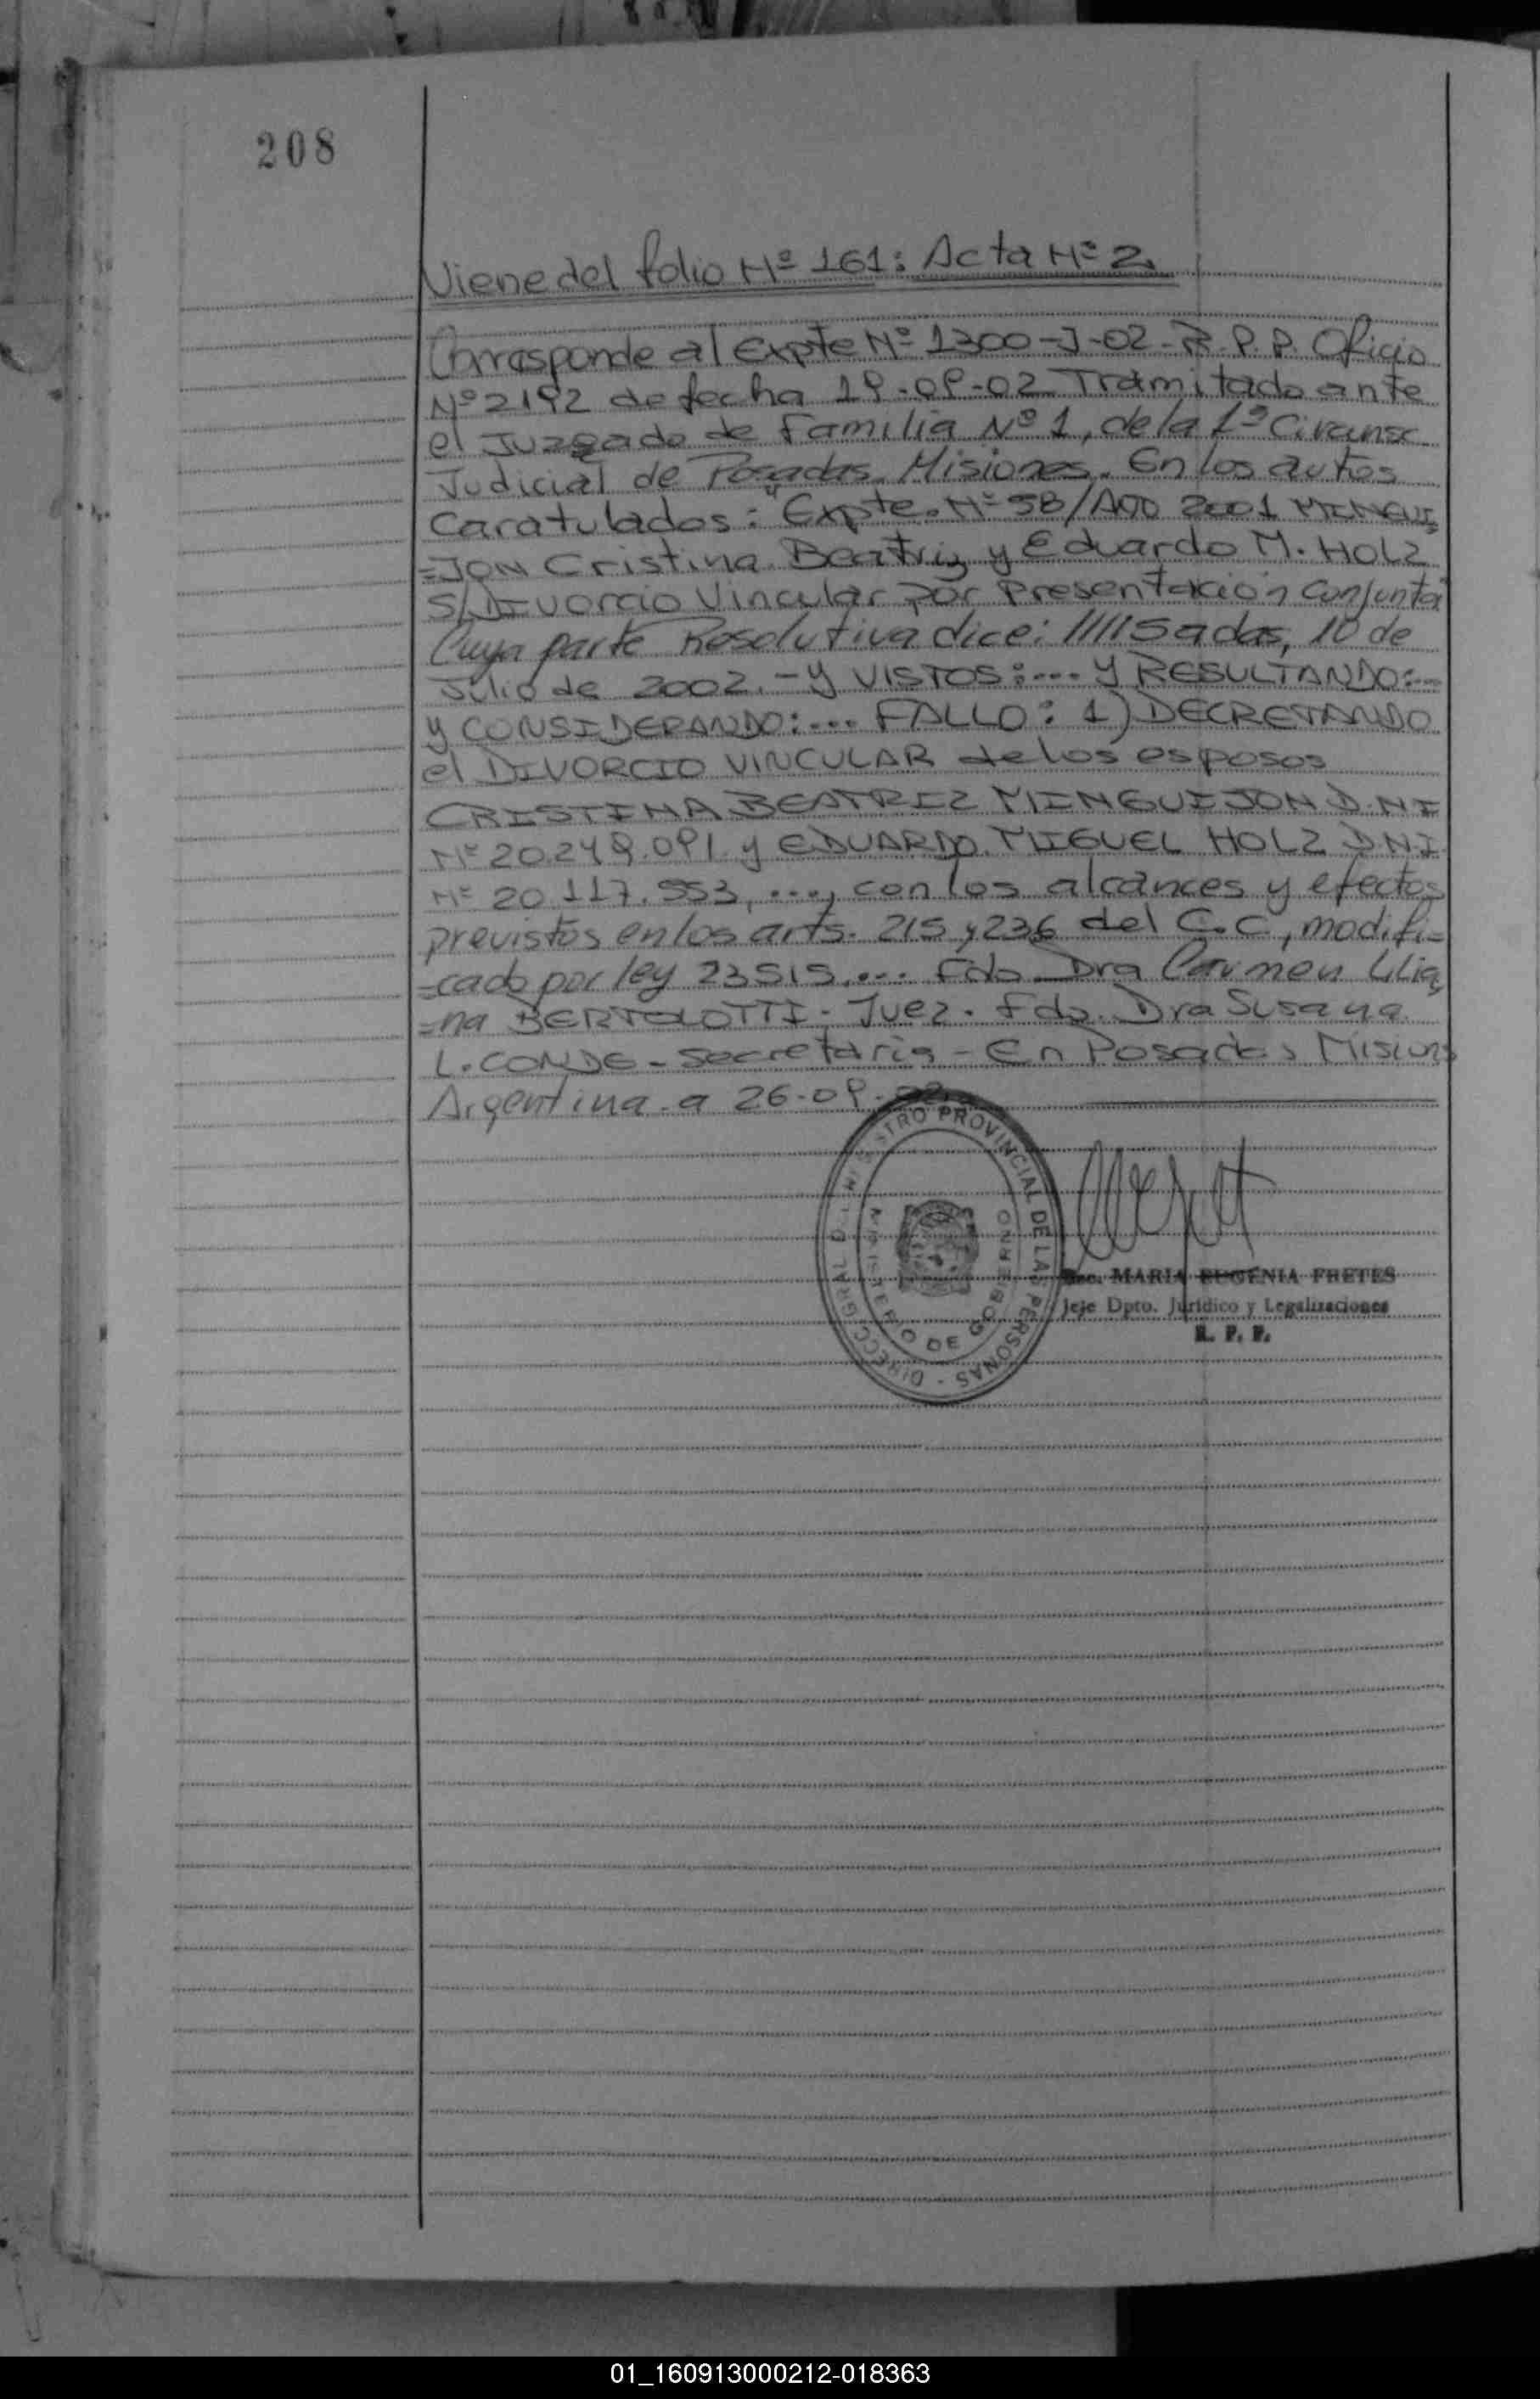 208
Viene del folio Nº 161: Acta Nº 2.
Corresponde al Expte Nº 1300-J-02-R.P.P. Oficio
Nº 2192 de fecha 19-09-02 Tramitado ante
el Juzgado de Familia Nº 1, de la 1ª Circunsc
Judicial de Posadas. Misiones. En los autos
Caratulados: "Expte. Nº 58/AÑO 2001 MINGUI
=JON Cristina Beatriz y Eduardo M. HOLZ
S/DIVORCIO Vincular por Presentación Conjunta"
Cuya parte Resolutiva dice: /////Sadas, 10 de
Julio de 2002.- y VISTOS:... y RESULTANDO:...
y CONSIDERANDO:... FALLO: 1) DECRETANDO
el DIVORCIO VINCULAR de los esposos
CRISTINA BEATRIZ MINGUIJON D.NI
Nº 20.249.091 y EDUARDO MIGUEL HOLZ D.N.I.
Nº 20.117.553, ..., con los alcances y efectos
previstos en los arts. 215 y 236 del C.C., modifi=
=cado por ley 23515.... Fdo Dra Carmen Lilia
=na BERTOLOTTI - Juez. Fdo. Dra Susana
L. CONDE - Secretaria - En Posadas Misiones
Argentina a 26-09-02
DIRECC. GRAL. DEL REGISTRO PROVINCIAL DE LAS PERSONAS -
MINISTERIO DE GOBIERNO
Esc. MARIA EUGENIA FRETES
Jefe Dpto. Jurídico y Legalizaciones
R. P. P.
01_160913000212-018363